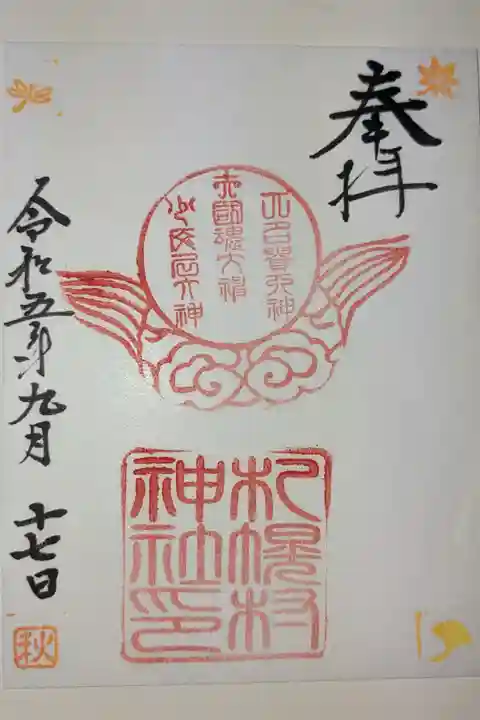 奉拝
大己貴大神
大國魂大神
少彦名大神
札幌村
神社印
令和五年九月十七日
秋